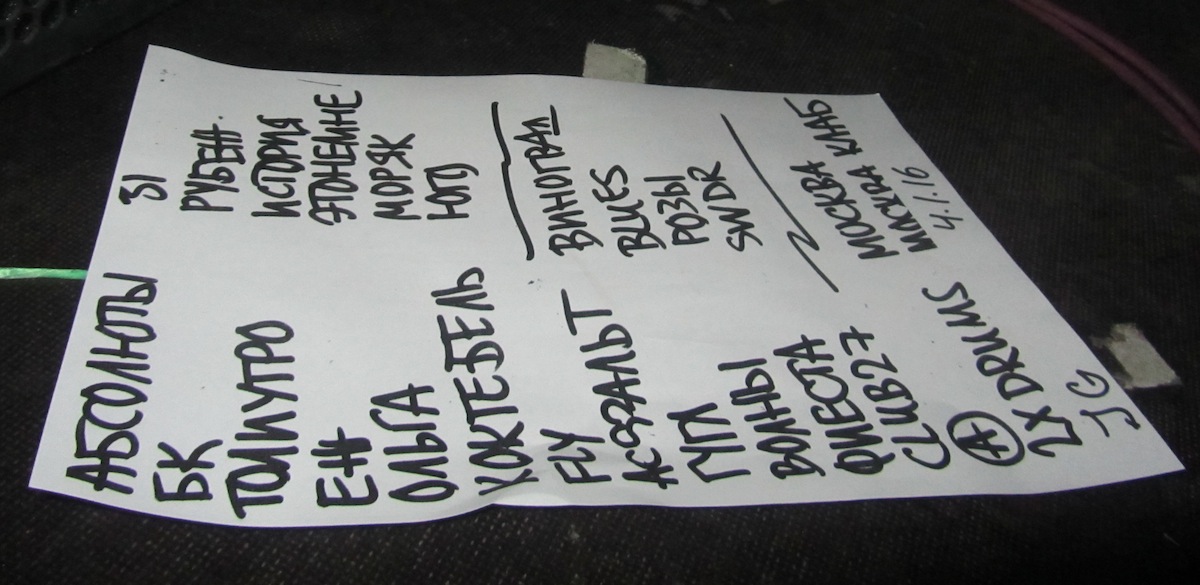 АБСОЛЮТЫ
БК
ТОЛИУТРО
ЕН
ОЛЬГА
КОКТЕБЕЛЬ
FLY
АСФАЛЬТ
ГУЛ
ВОЛНЫ
ФИЕСТА
CLUB 27
A+
2X DRUMS
JG
31
РУБЕН.
ИСТОРИЯ
ЭТОНЕМНЕ
МОРЯК
ЮГ
ВИНОГРАД
BLUES
РОЗЫ
SW/DR
МОСКВА
4.1.16